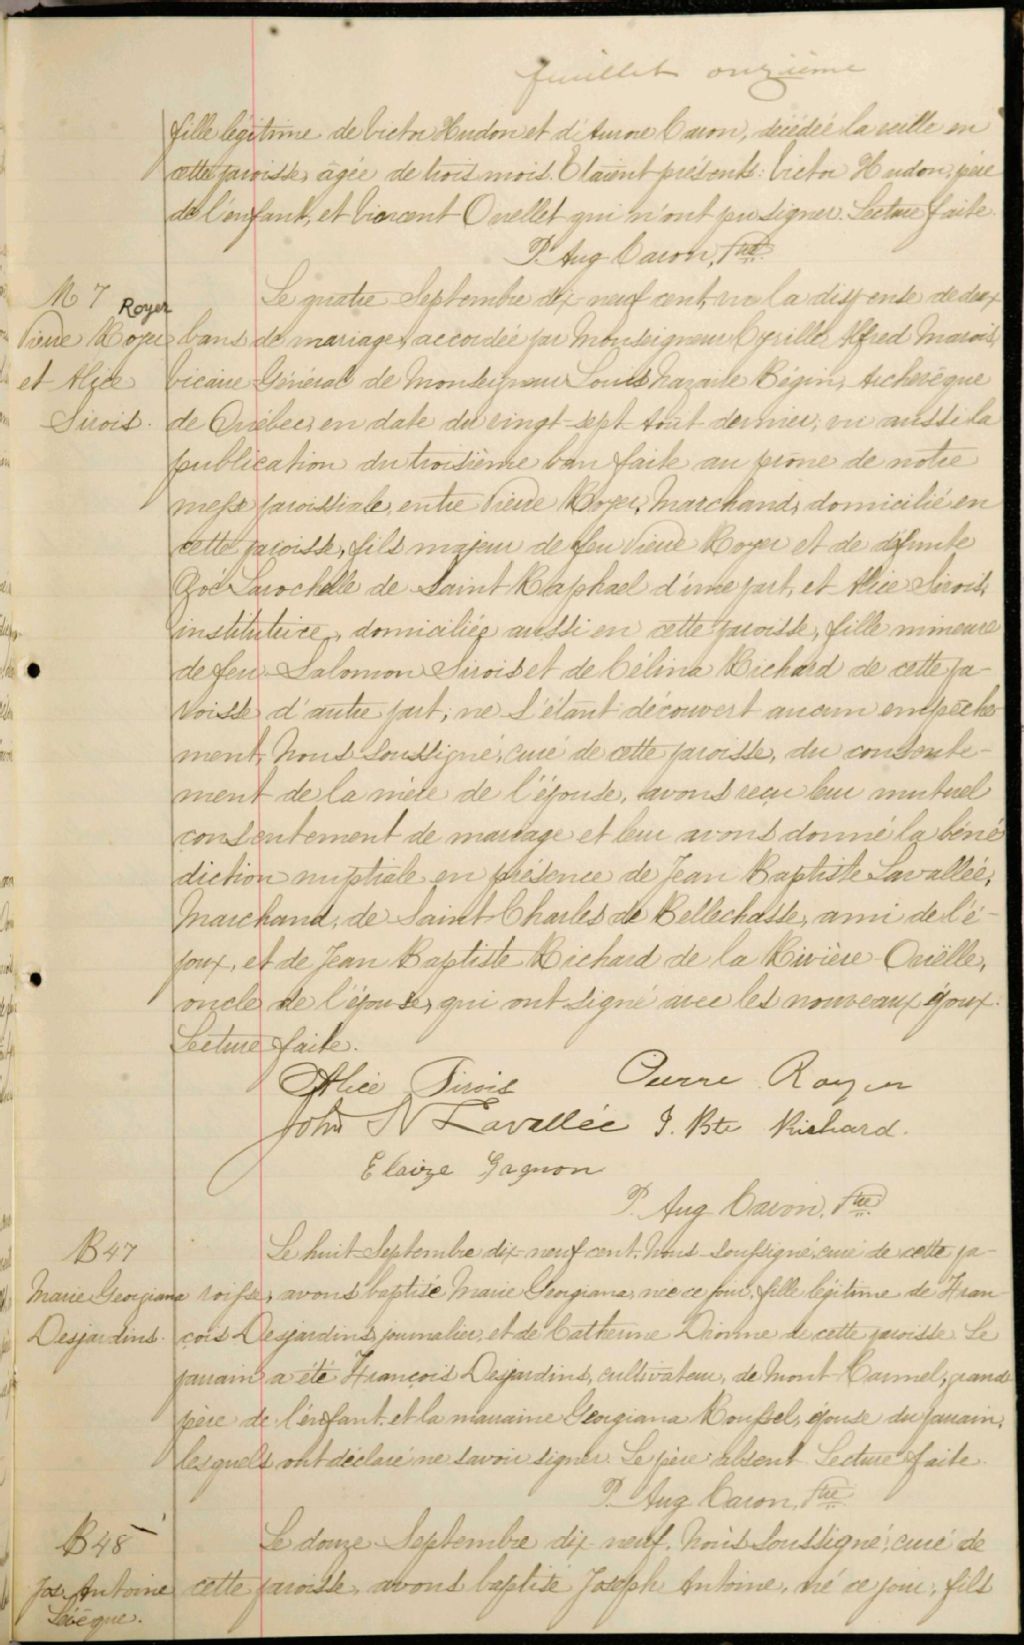 feuillet onzième
fille légitime de Victor Hudon et d'Aurore Caron, décédée la veille en
cette paroisse, âgée de trois mois. Etaient présents: Victor Hudon, père
de l'enfant, et Vincent Ouellet qui n'ont pu signer. Lecture faite.
P. Aug Caron, Ptre
M 7
Royer
Pierre Royer
et Alice
Sirois.
Le quatre Septembre dix-neuf cent, vu la dispense de deux
bans de mariage, accordée par Monseigneur Cyrille Alfred Marois,
Vicaire Général de Monseigneur Louis Nazaire Bégin, Archevêque
de Québec, en date du vingt-sept Août dernier; vu aussi la
publication du troisième ban faite au prône de notre
messe paroissiale, entre Pierre Royer, Marchand, domicilié en
cette paroisse, fils majeur de feu Pierre Royer et de défunte
Zoé Larochelle de Saint Raphael d'une part, et Alice Sirois,
institutrice, domiciliée aussi en cette paroisse, fille mineure
de feu Salomon Sirois et de Célina Richard de cette pa-
roisse d'autre part; ne s'étant découvert aucun empêche-
ment, Nous soussigné, curé de cette paroisse, du consente-
ment de la mère de l'épouse, avons reçu leur mutuel
consentement de mariage et leur avons donné la béné
diction nuptiale en présence de Jean Baptiste Lavallée,
Marchand, de Saint Charles de Bellechasse, ami de l'é-
poux, et de Jean Baptiste Richard de la Rivière-Ouëlle,
oncle de l'épouse, qui ont signé avec les nouveaux époux.
Lecture faite.
Alice Sirois Pierre Royer
John N Lavallée J. Bte Richard.
Elaize Gagnon
P. Aug Caron, Ptre
B 47
Marie Georgiana
Desjardins.
Le huit Septembre dix-neuf cent, Nous soussigné, curé de cette pa-
roisse, avons baptisé Marie Georgiana, née ce jour, fille légitime de Fran-
çois Desjardins, journalier, et de Catherine Dionne de cette paroisse. Le
parrain a été François Desjardins, cultivateur, de Mont Carmel, grand
père de l'enfant, et la marraine Georgiana Roussel, épouse du parrain,
lesquels ont déclaré ne savoir signer. Le père absent. Lecture faite.
P. Aug Caron, Ptre
B 48
Jos. Antoine
Lévêque.
Le douze Septembre dix-neuf, Nous soussigné, curé de
cette paroisse, avons baptisé Joseph Antoine, né ce jour, fils